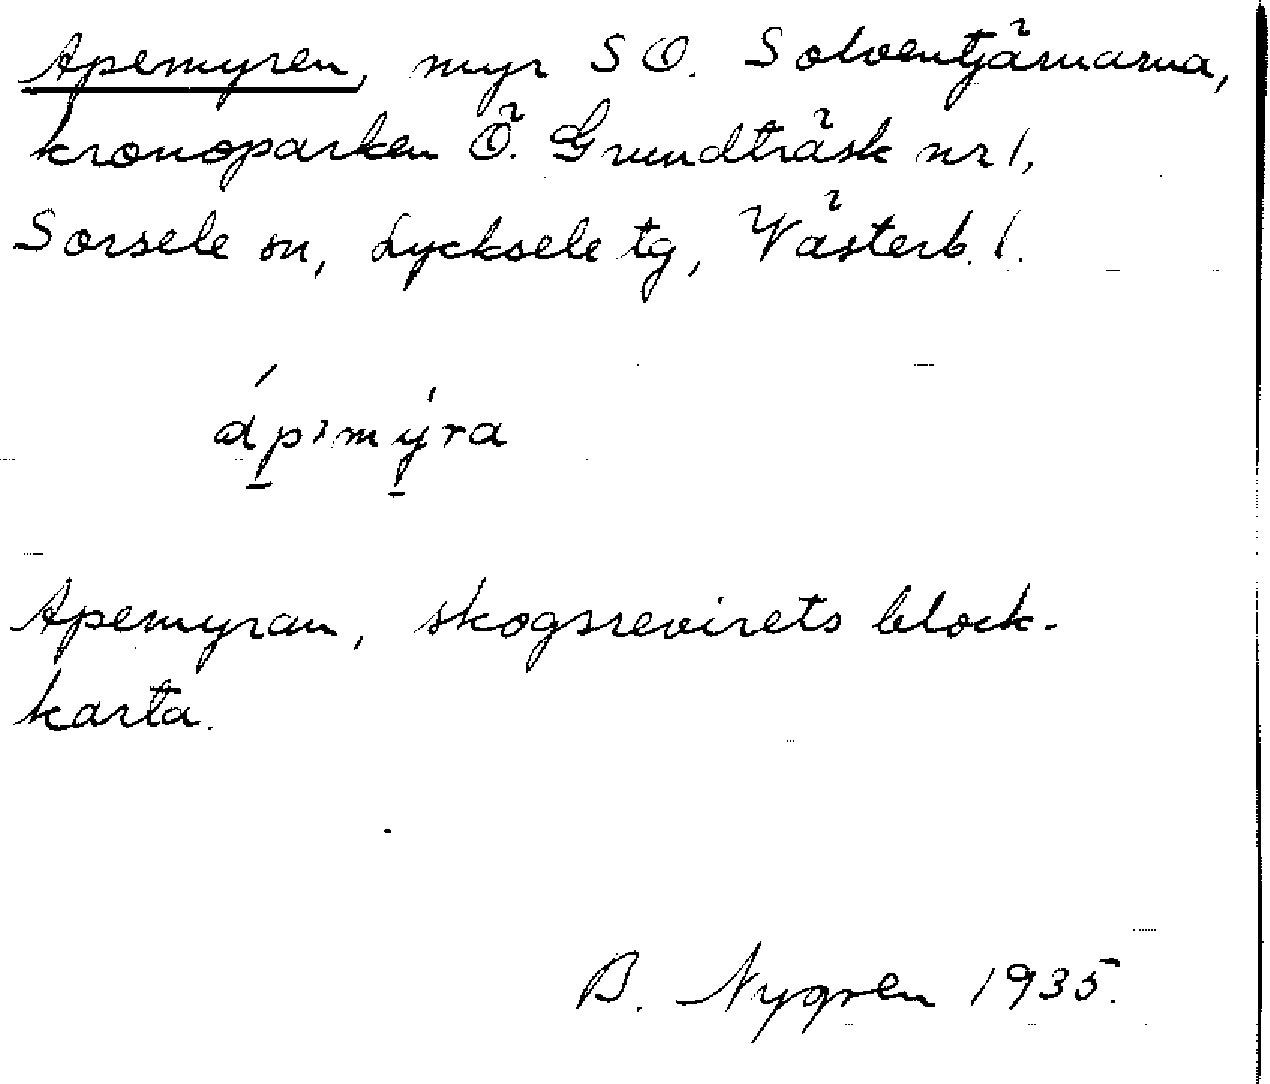 Apemyren, myr SO. Solventjärnarna,
kronoparken Ö. Grundträsk nr 1,
Sorsele sn, Lycksele tg, Västerb. l.
ápımýra
Apemyran, skogsrevirets block-
karta.
B. Nygren 1935.